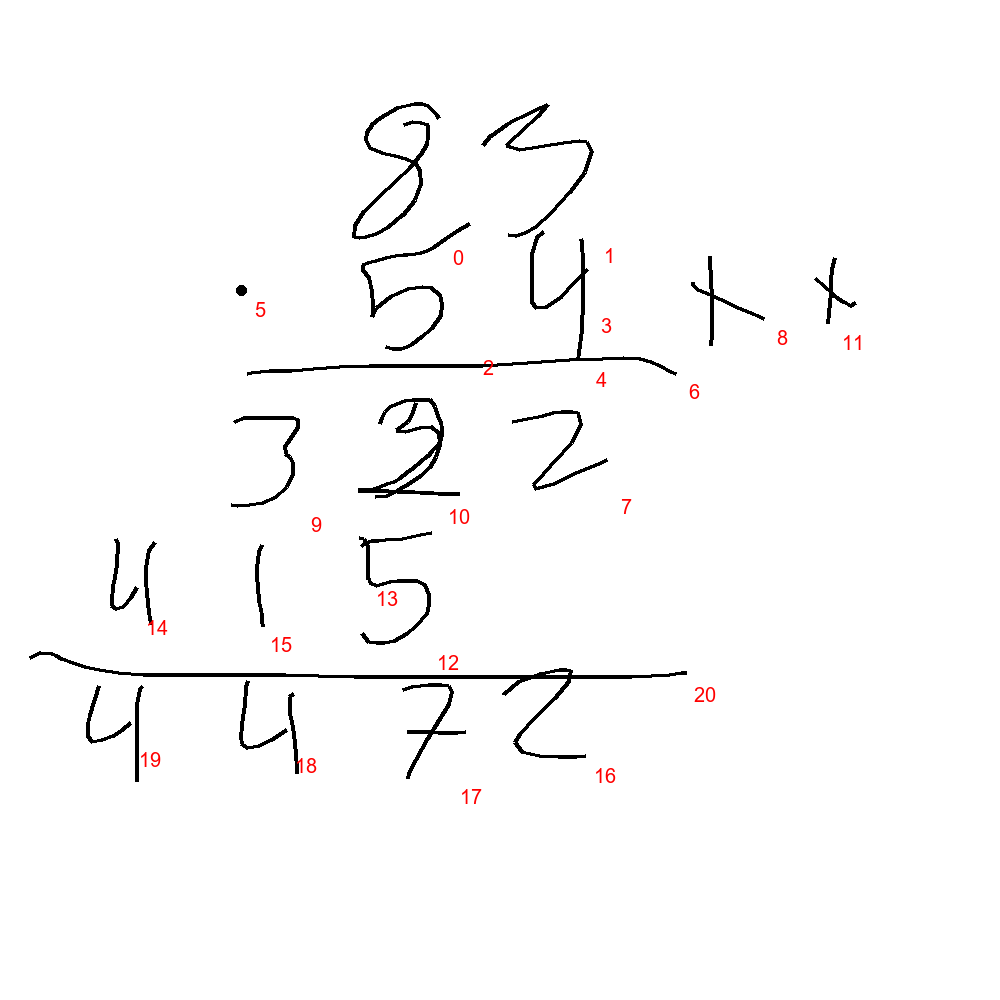 83
0 1
· 54 + +
5 3 8 11
2 4 6
3 2 2
9 10 7
4 1 5
13
14 15 12
20
4 4 7 2
19 18 17 16